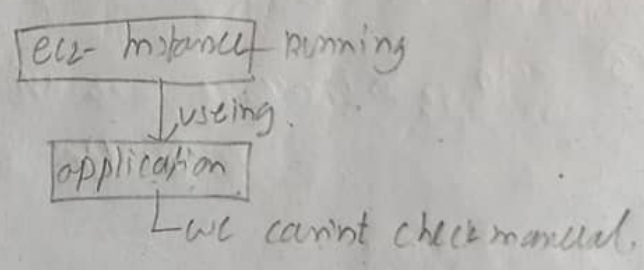 ec2- Instance - Running
useing.
application
we cann't check manual.